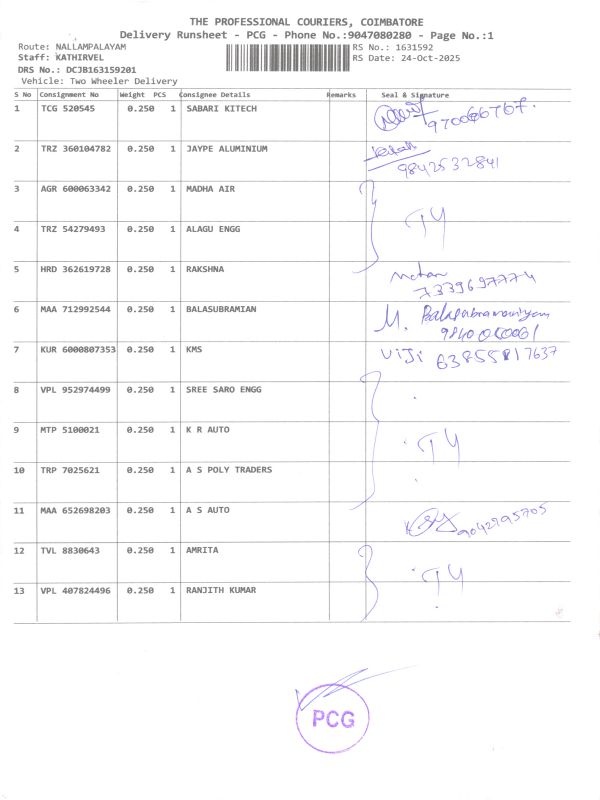 THE PROFESSIONAL COURIERS, COIMBATORE
Delivery Runsheet - PCG - Phone No.:9047080280 - Page No.:1
Route: NALLAMPALAYAM RS No.: 1631592
Staff: KATHIRVEL RS Date: 24-Oct-2025
DRS No.: DCJB163159201
Vehicle: Two Wheeler Delivery
S No Consignment No Weight PCS Consignee Details Remarks Seal & Signature
1 TCG 520545 0.250 1 SABARI KITECH
2 TRZ 360104782 0.250 1 JAYPE ALUMINIUM
9842532841
3 AGR 600063342 0.250 1 MADHA AIR
TY
4 TRZ 54279493 0.250 1 ALAGU ENGG
5 HRD 362619728 0.250 1 RAKSHNA
Mohan
7339697774
6 MAA 712992544 0.250 1 BALASUBRAMIAN
M. Balasubramaniyam
7 KUR 6000807353 0.250 1 KMS
VIJI 63855817637
8 VPL 952974499 0.250 1 SREE SARO ENGG
9 MTP 5100021 0.250 1 K R AUTO
TY
10 TRP 7025621 0.250 1 A S POLY TRADERS
11 MAA 652698203 0.250 1 A S AUTO
9042995705
12 TVL 8830643 0.250 1 AMRITA
TY
13 VPL 407824496 0.250 1 RANJITH KUMAR
PCG